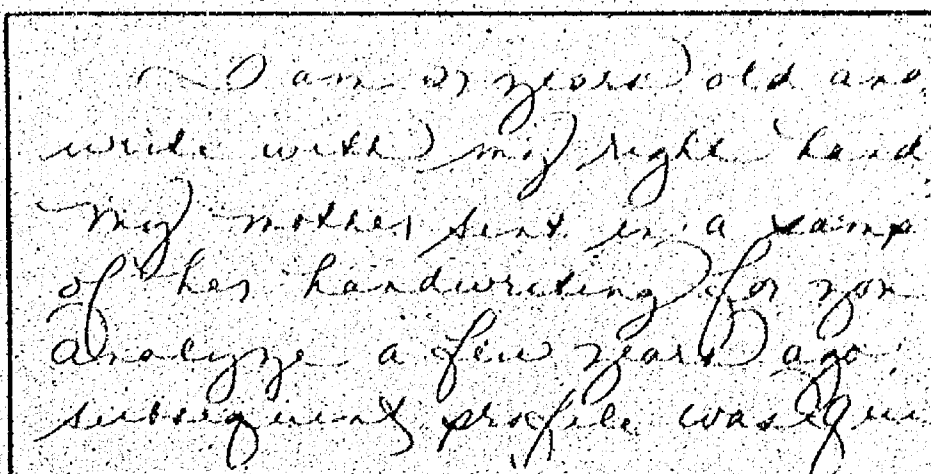 I am years old and
write with my right hand
My mother sent in a samp
of her handwriting for you
analyze a few years ago.
subsequent profile was qui